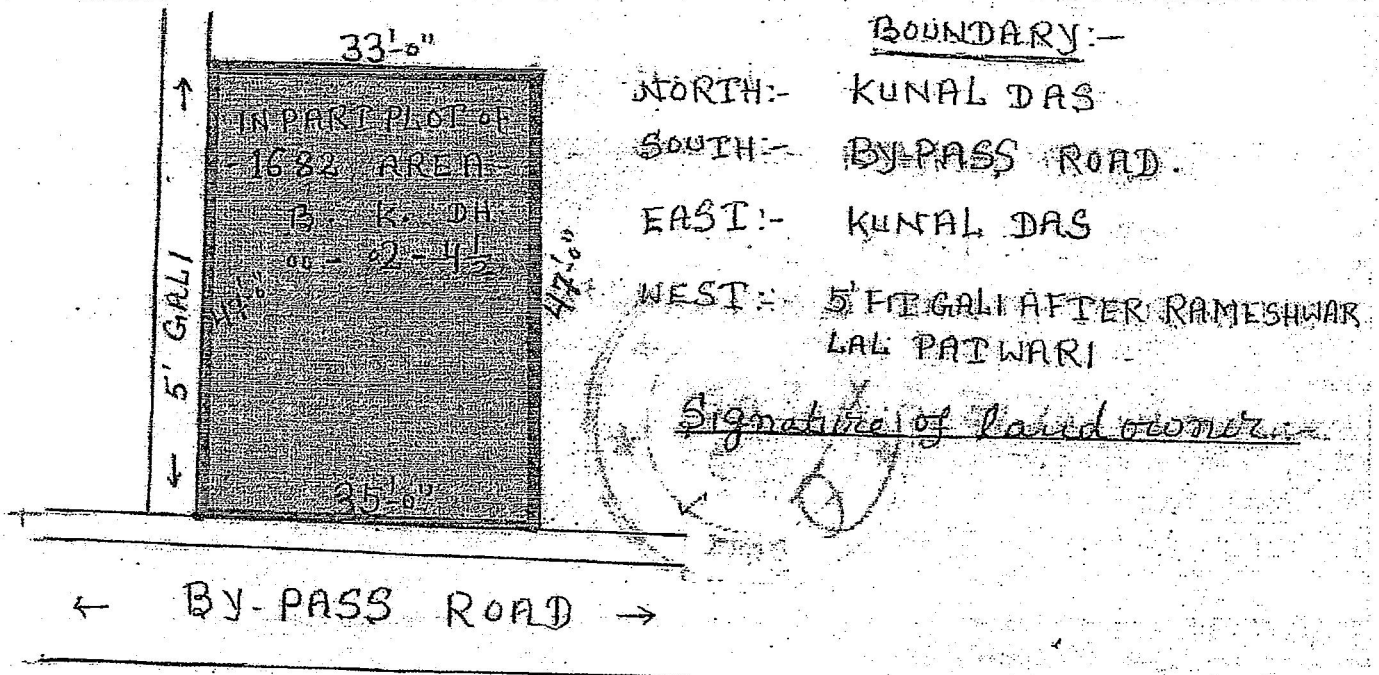 33'-0"
IN PART PLOT OF
-1682 AREA-
B. K. DH
00 - 02 - 4½
47'-0"
35'-0"
5' GALI
BY-PASS ROAD
BOUNDARY:-
NORTH:- KUNAL DAS
SOUTH:- BY-PASS ROAD.
EAST:- KUNAL DAS
WEST:- 5' FIT GALI AFTER RAMESHWAR
LAL PATWARI
Signature of land owner:-